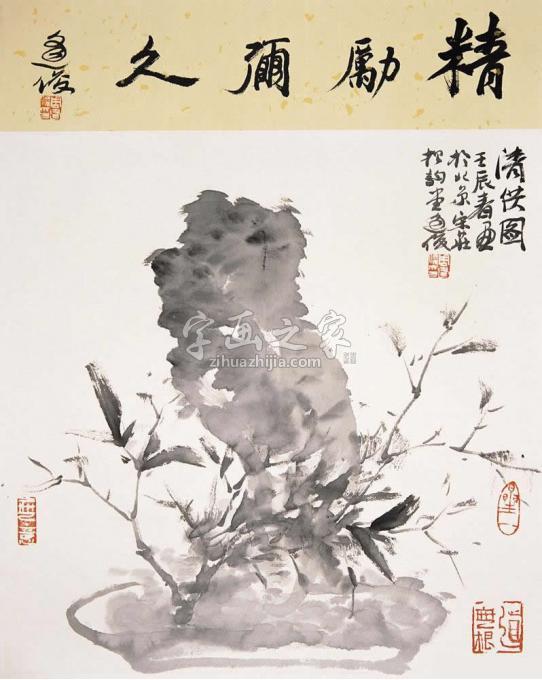 精勵彌久
逸俊
清供图
壬辰春画
於北京宋莊
松韵堂逸俊
字画之家
zihuazhijia.com